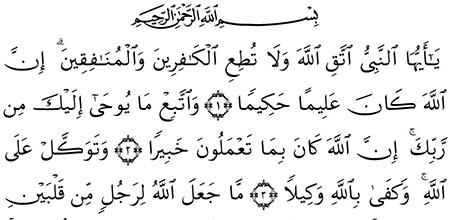 بِسْمِ اللَّهِ الرَّحْمَٰنِ الرَّحِيمِ
يَٰٓأَيُّهَا النَّبِيُّ اتَّقِ اللَّهَ وَلَا تُطِعِ الْكَٰفِرِينَ وَالْمُنَٰفِقِينَ ۗ إِنَّ
اللَّهَ كَانَ عَلِيمًا حَكِيمًا ﴿١﴾ وَاتَّبِعْ مَا يُوحَىٰٓ إِلَيْكَ مِن
رَّبِّكَ ۚ إِنَّ اللَّهَ كَانَ بِمَا تَعْمَلُونَ خَبِيرًا ﴿٢﴾ وَتَوَكَّلْ عَلَى
اللَّهِ ۚ وَكَفَىٰ بِاللَّهِ وَكِيلًا ﴿٣﴾ مَّا جَعَلَ اللَّهُ لِرَجُلٍ مِّن قَلْبَيْنِ